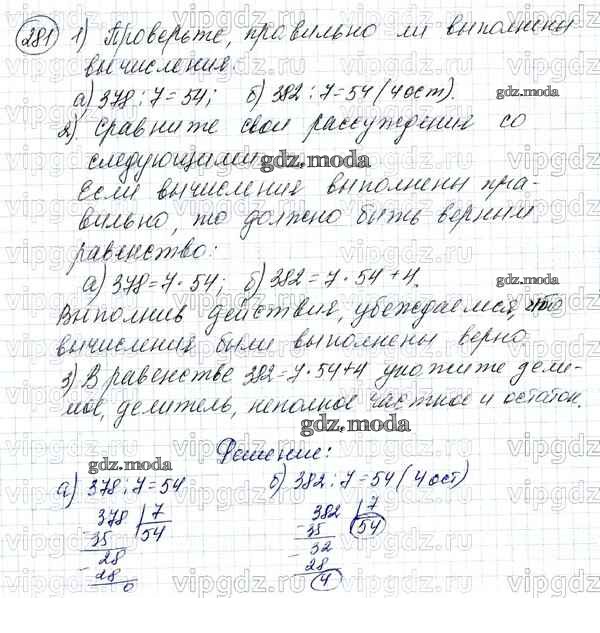 281 1) Проверьте, правильно ли выполнены
вычисления:
а) 378 : 7 = 54; б) 382 : 7 = 54 (4 ост).
gdz.moda
2) Сравните свои рассуждения со
следующими
gdz.moda
Если вычисления выполнены пра-
вильно, то должно быть верным
равенство:
а) 378 = 7 · 54; б) 382 = 7 · 54 + 4.
gdz.moda
Выполнив действия, убеждаемся, что
вычисления были выполнены верно.
3) В равенстве 382 = 7 · 54 + 4 укажите дели-
мое, делитель, неполное частное и остаток.
gdz.moda
Решение:
gdz.moda
а) 378 : 7 = 54
б) 382 : 7 = 54 (4 ост)
378 7
- 35 54
28
- 28
0
382 7
- 35 54
32
- 28
4
gdz.moda
vipgdz